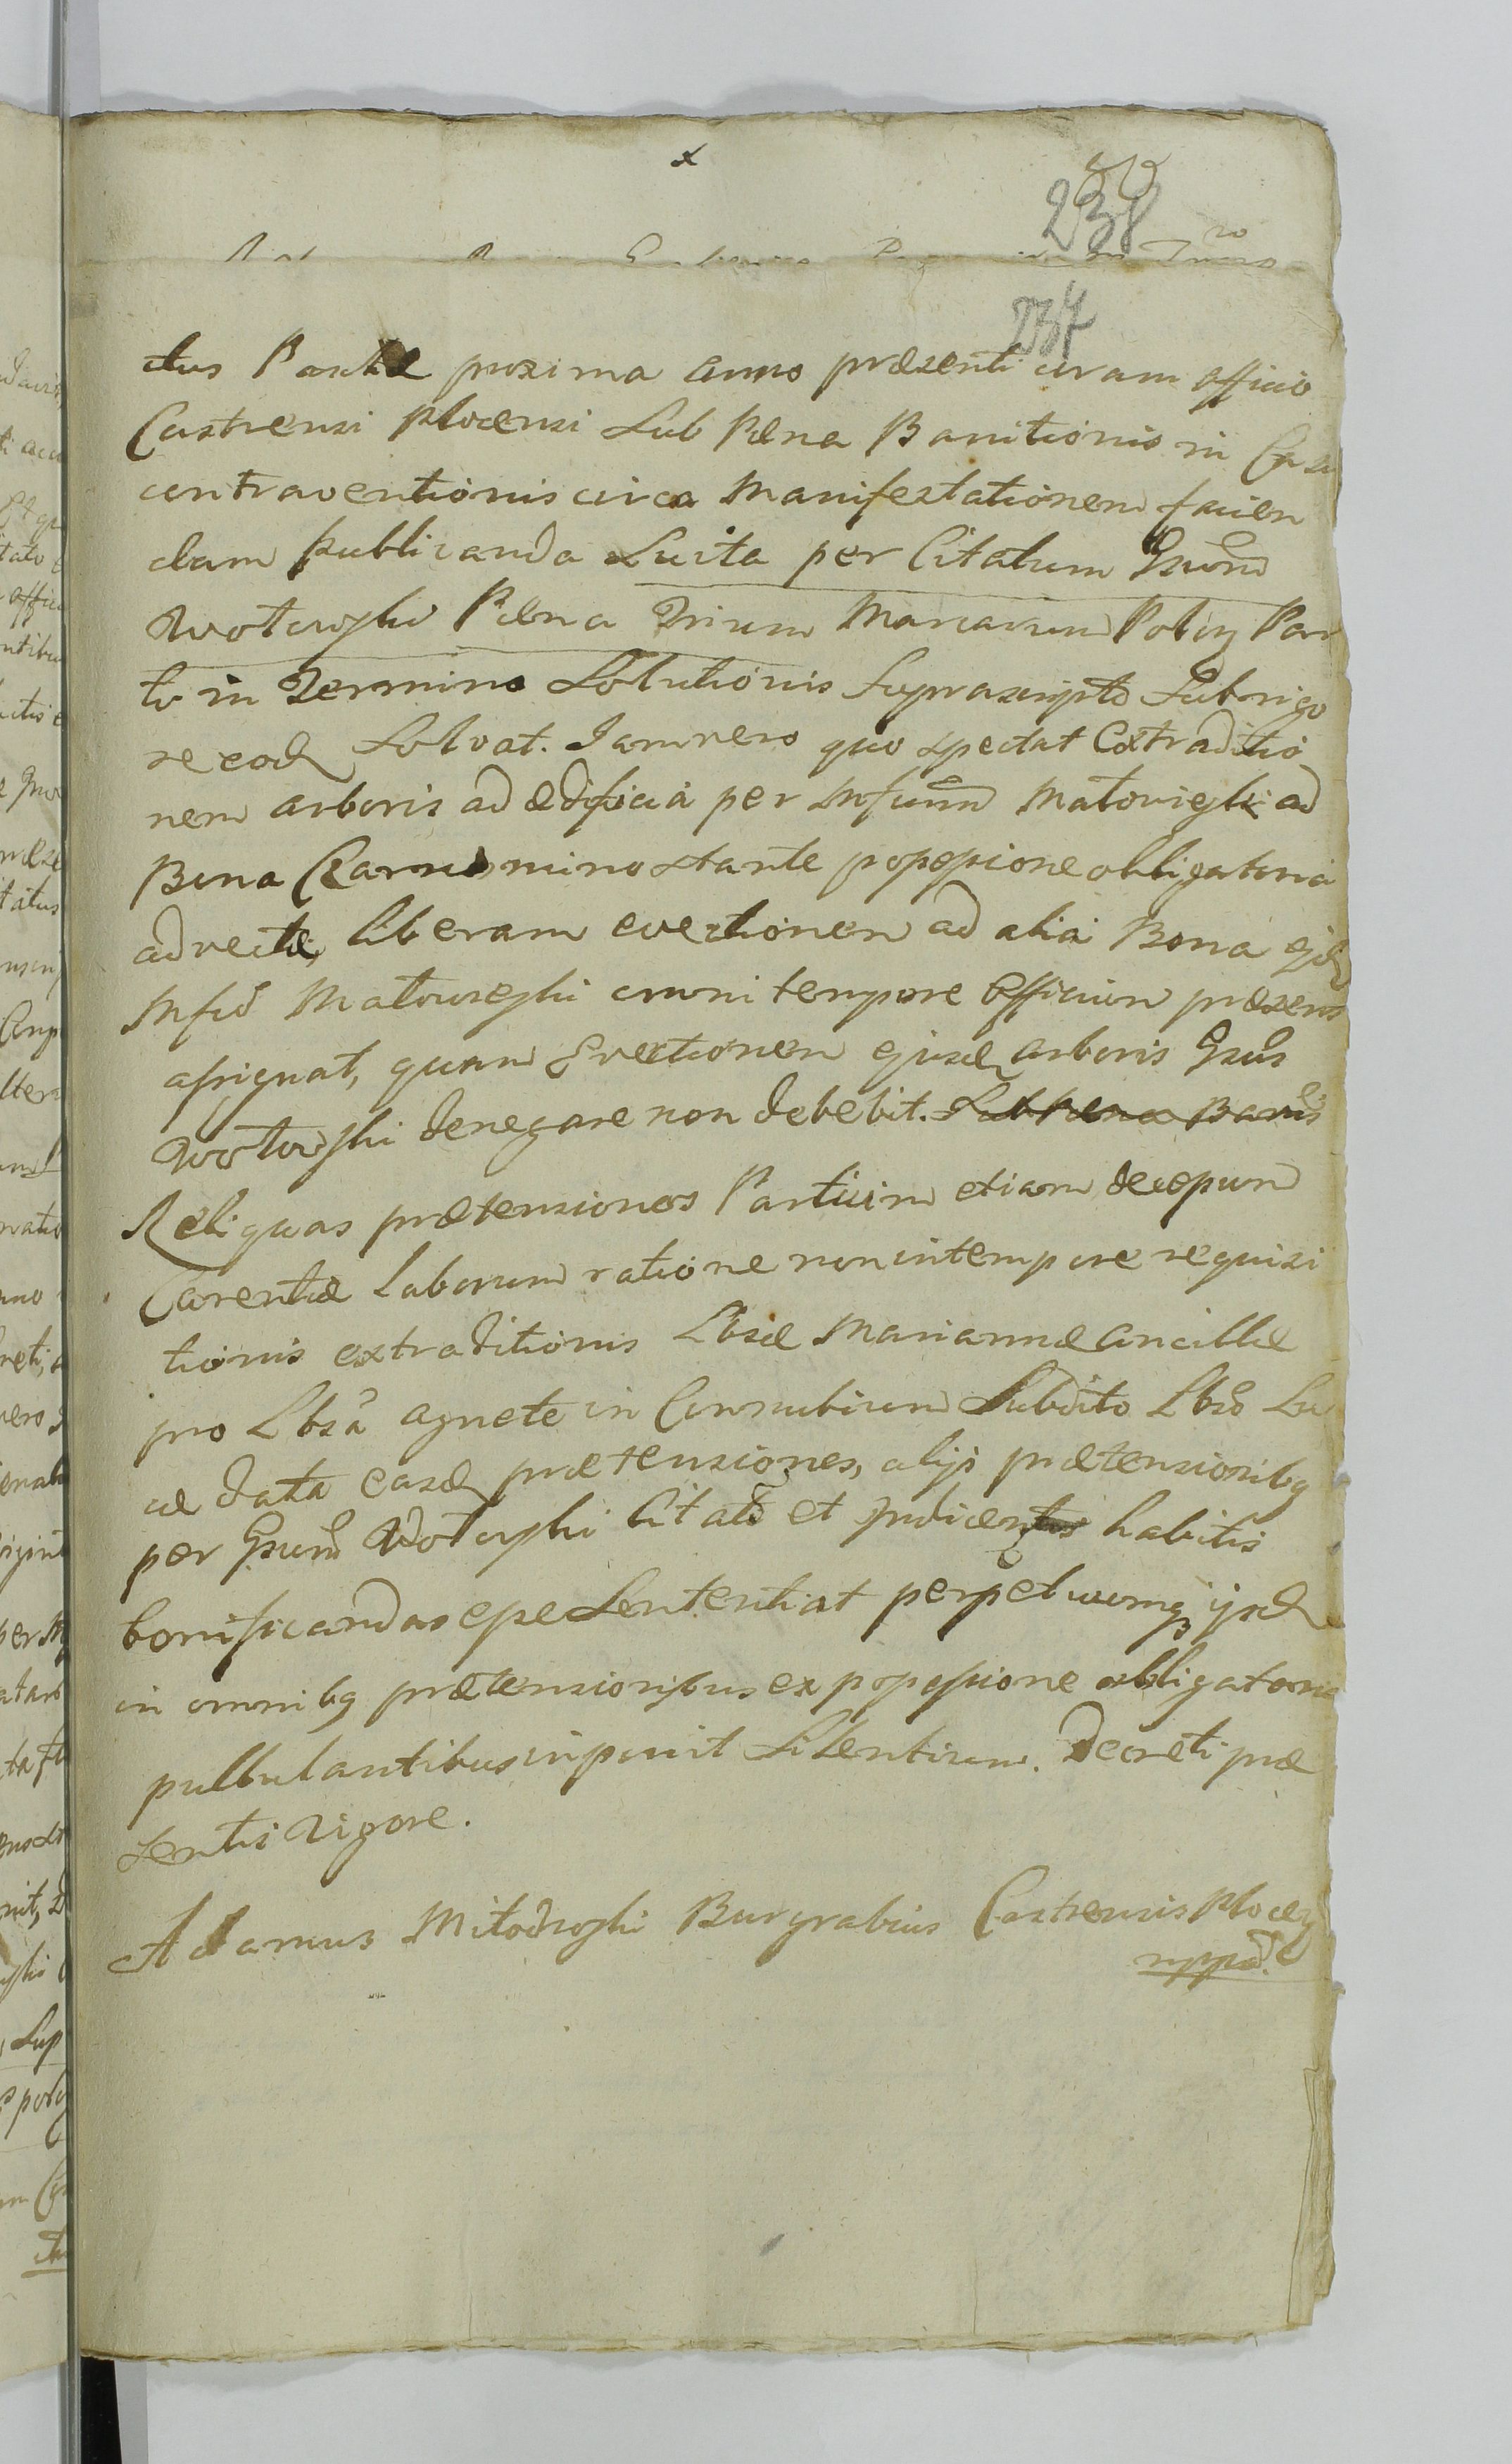 238
237
ctus Paschæ proxima anno præsenti coram officio
Castrensi Plocensi sub Pæna Banitionis in Casu
contraventionis circa Manifestationem facien
dam publicanda Luita per Citatum Gsum
Wotowski Pæna Trium Marcarum Polon Par
to in Termino Solutionis suprascripto sub rigo
re eod Solvat. Jam vero quo spectat Extraditio
nem arboris ad ædificia per Mfcum Matowieski ad
Bona Czarnomino stante possessione obligatoria
advectæ, liberam evectionem ad alia Bona ejd
Mfci Matowieski omni tempore Officium præsens
assignat, quam Evectionem ejusd arboris Gsus
Wotowski denegare non debebit. Sub Pæna Banis
Reliquas prætensiones Partium etiam decepum
Carentiæ laborum ratione non in tempore requisi
tionis extraditionis Lbsæ Mariannæ ancillæ
pro Lbsa Agnete in Connubium Subdito Lbso Lu
cæ data easd prætensiones, alijs prætensionibq
per Gsum Wotowski Citato et Judicentes habitis
bonificandas esse Sententiat perpetuumq ijsd
in omnibq prætensionibus ex possessione obligatoria
pullulantibus imponit Silentium. Decreti præ
sentis vigore.
Adamus Mitodroski Burgrabius Castrensis Plocen
mppa.